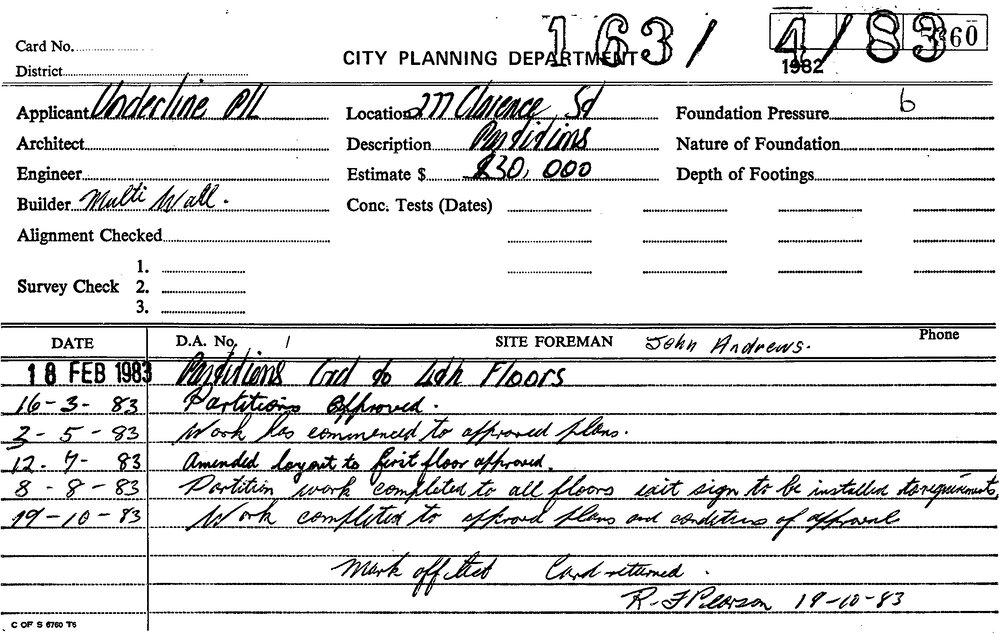 163/ 4/83 60
Card No.
CITY PLANNING DEPARTMENT 1982
District
Applicant Underline P/L Location 277 Clarence St Foundation Pressure 6
Architect Description Partitions Nature of Foundation
Engineer Estimate $ $30,000 Depth of Footings
Builder Multi Wall. Conc. Tests (Dates)
Alignment Checked
1.
Survey Check 2.
3.
DATE D.A. No. / SITE FOREMAN John Andrews. Phone
18 FEB 1983 Partitions Grd to 4th Floors
16-3-83 Partitions approved.
2-5-83 Work has commenced to approved plans.
12-7-83 Amended layout to first floor approved.
8-8-83 Partition work completed to all floors exit sign to be installed to requirements
19-10-83 Work completed to approved plans and conditions of approval
Mark off list Card returned.
R. J Pearson 19-10-83
C OF S 6760 T5